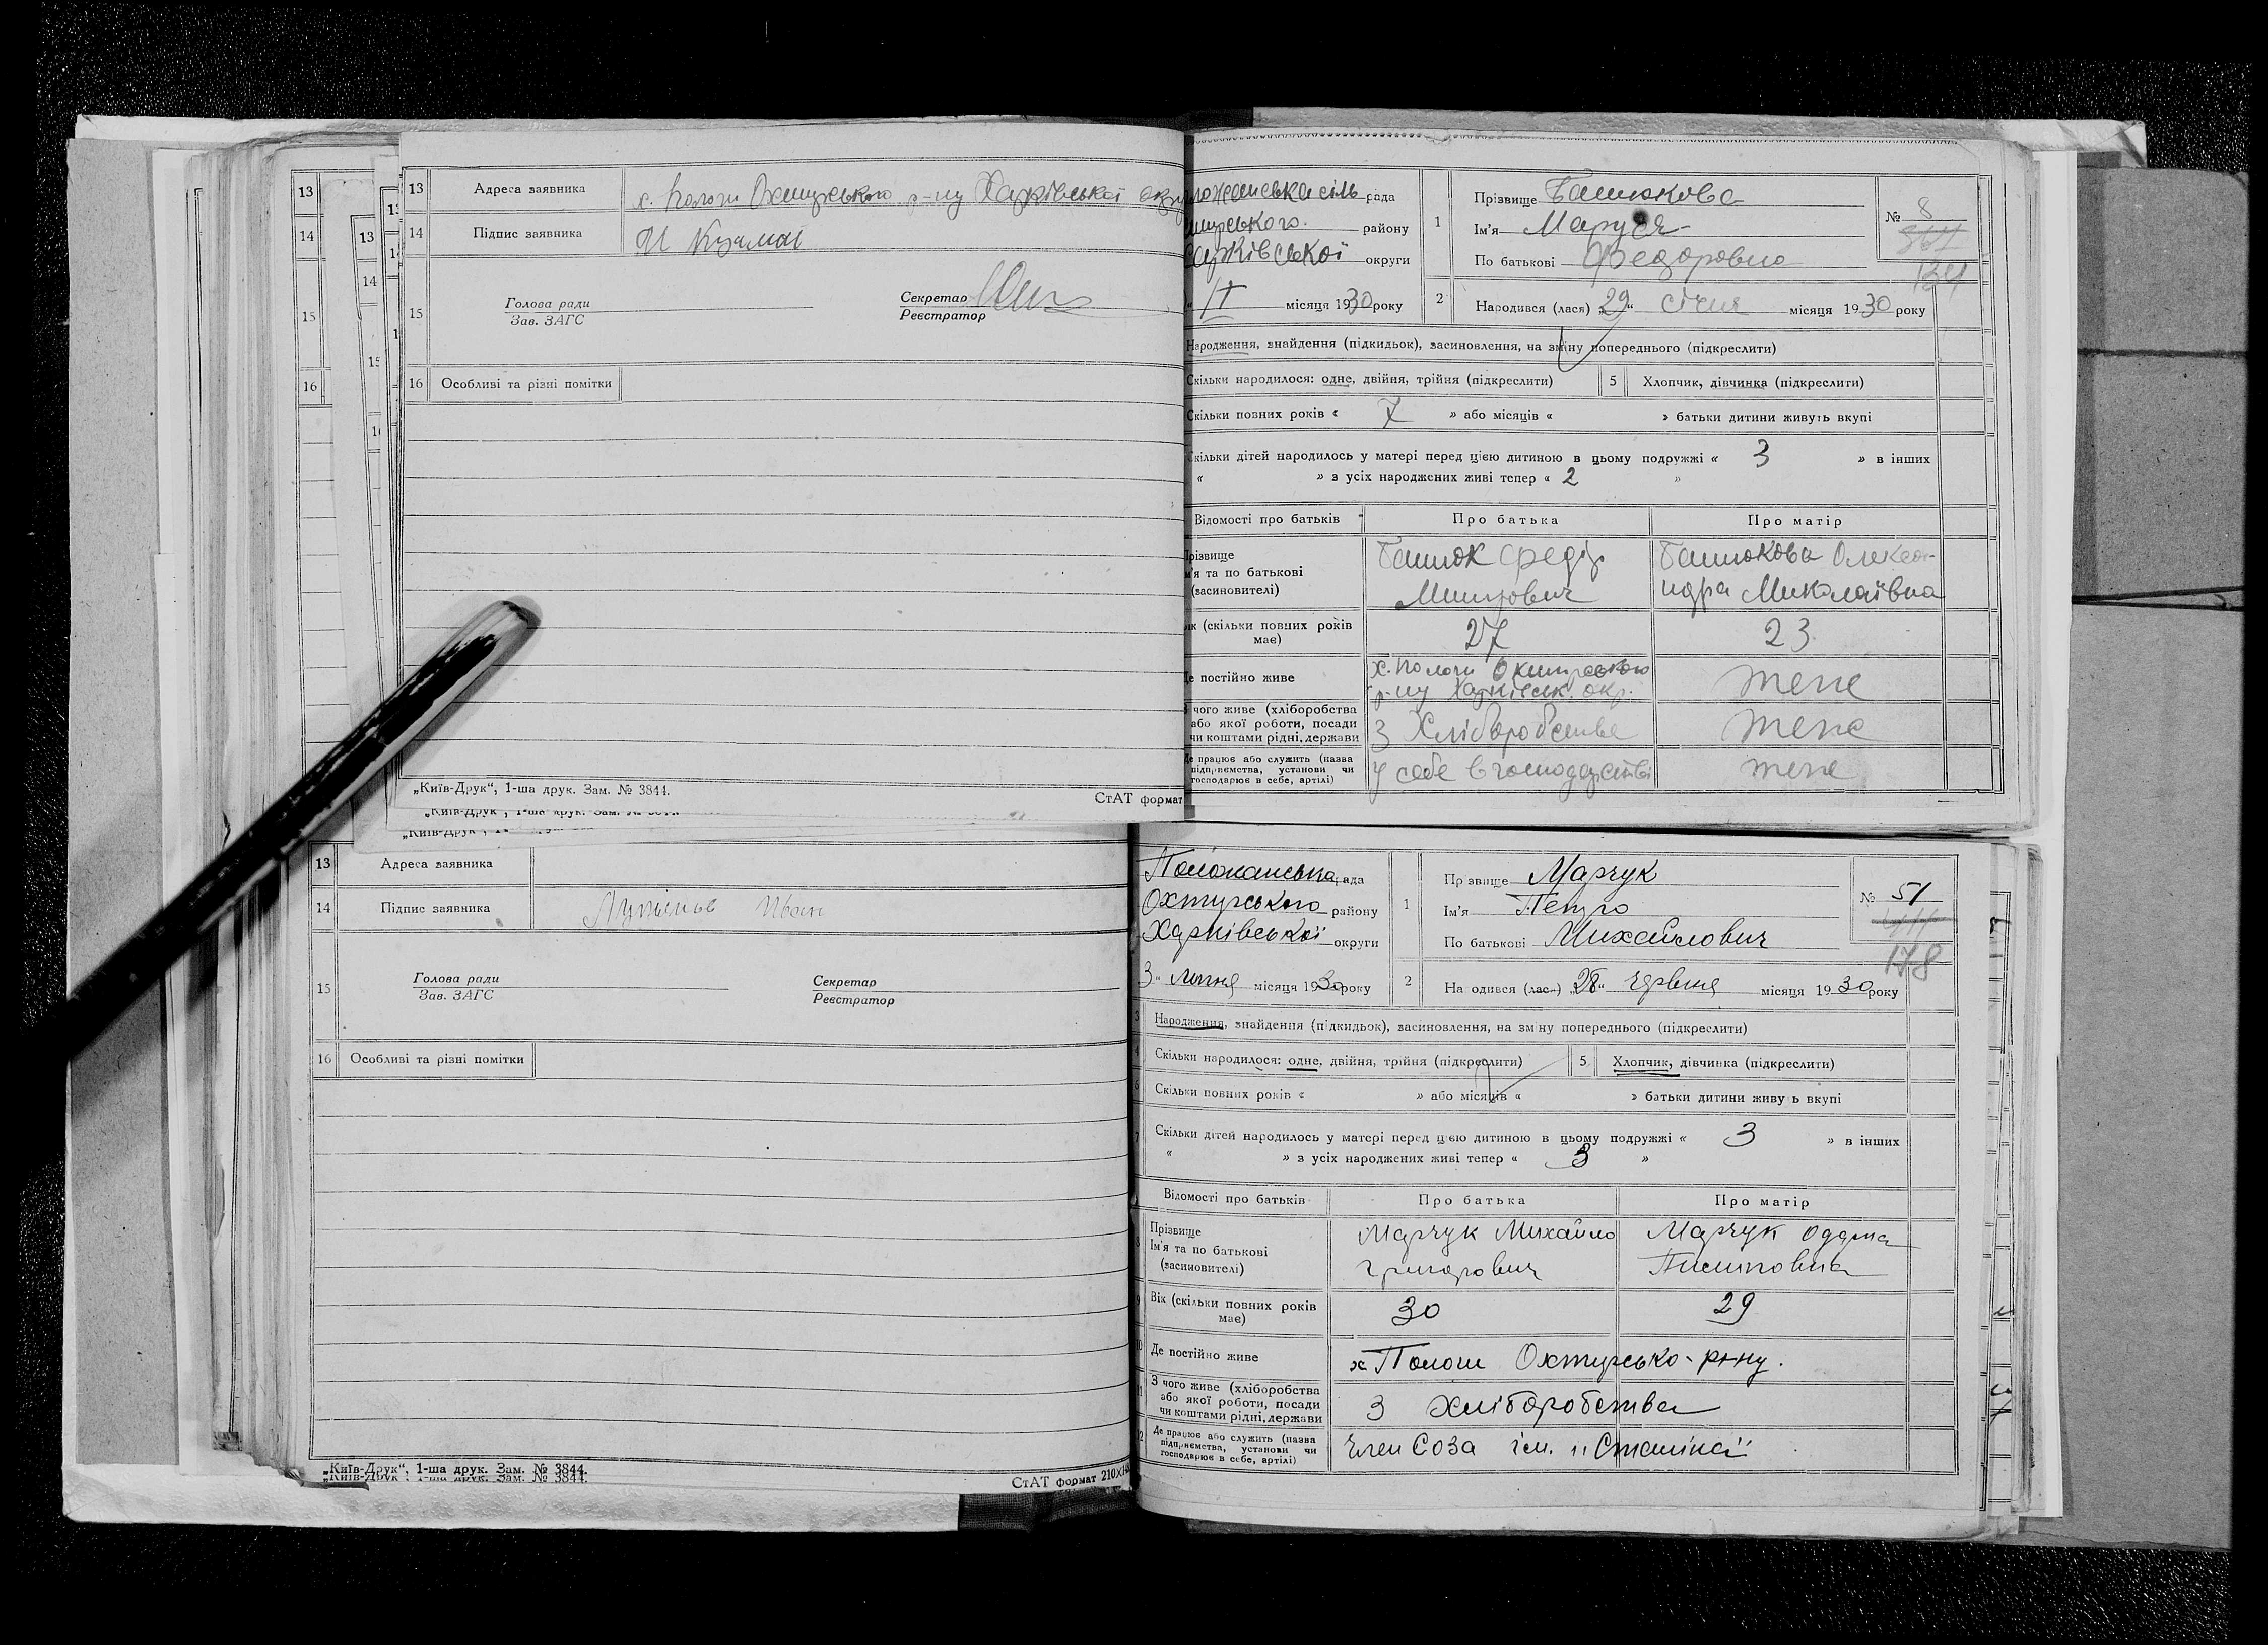 13 Адреса заявника х. Пологи Охтирського р-ну Харківської окр
14 Підпис заявника
15 Голова ради
Зав. ЗАГС
Секретар
Реєстратор
16 Особливі та різні помітки
„Київ-Друк“, 1-ша друк. Зам. № 3844.
СтАТ формат
рада
району
Харківської округи
місяця 1930 року
1 Прізвище Башокова
Ім'я Маруся
По батькові Федоровна
№ 8
134
2 Народився (лася) „29“ січня місяця 1930 року
Народження, знайдення (підкидьок), засиновлення, на зміну попереднього (підкреслити)
Скільки народилося: одне, двійня, трійня (підкреслити)
5 Хлопчик, дівчинка (підкреслити)
Скільки повних років « 7 » або місяців « » батьки дитини живуть вкупі
Скільки дітей народилось у матері перед цією дитиною в цьому подружжі « 3 » в інших
« » з усіх народжених живі тепер « 2 »
Відомості про батьків Про батька Про матір
Прізвище
Ім'я та по батькові
(засиновителі)
Башок Федір
Башокова Олекса-
ндра Миколаївна
Вік (скільки повних років
має)
27 23
Де постійно живе
х. Пологи Охтирського
р-ну Харківськ. окр.
теж
З чого живе (хліборобства
або якої роботи, посади
чи коштами рідні, держави
З Хліборобства
теж
Де працює або служить (назва
підприємства, установи чи
господарює в себе, артілі)
у себе в господарстві
теж
13 Адреса заявника
14 Підпис заявника Іван
15 Голова ради
Зав. ЗАГС
Секретар
Реєстратор
16 Особливі та різні помітки
„Київ-Друк“, 1-ша друк. Зам. № 3844.
СтАТ формат 210×1
Положанська рада
Охтирського району
Харківської округи
3“ липня місяця 1930 року
1 Прізвище Марчук
Ім'я Петро
По батькові Михайлович
№ 51
178
2 Народився (лась) „28“ червня місяця 1930 року
3 Народження, знайдення (підкидьок), засиновлення, на зміну попереднього (підкреслити)
4 Скільки народилося: одне, двійня, трійня (підкреслити)
5 Хлопчик, дівчинка (підкреслити)
6 Скільки повних років « » або місяців « » батьки дитини живуть вкупі
7 Скільки дітей народилось у матері перед цією дитиною в цьому подружжі « 3 » в інших
« » з усіх народжених живі тепер « 3 »
Відомості про батьків Про батька Про матір
8 Прізвище
Ім'я та по батькові
(засиновителі)
Марчук Михайло
Григорович
Марчук
9 Вік (скільки повних років
має)
30 29
10 Де постійно живе
х Пологи Охтирсько- р-ну.
11 З чого живе (хліборобства
або якої роботи, посади
чи коштами рідні, держави
З хліборобства
12 Де працює або служить (назва
підприємства, установи чи
господарює в себе, артілі)
Член Соза ім. „Сталіна“